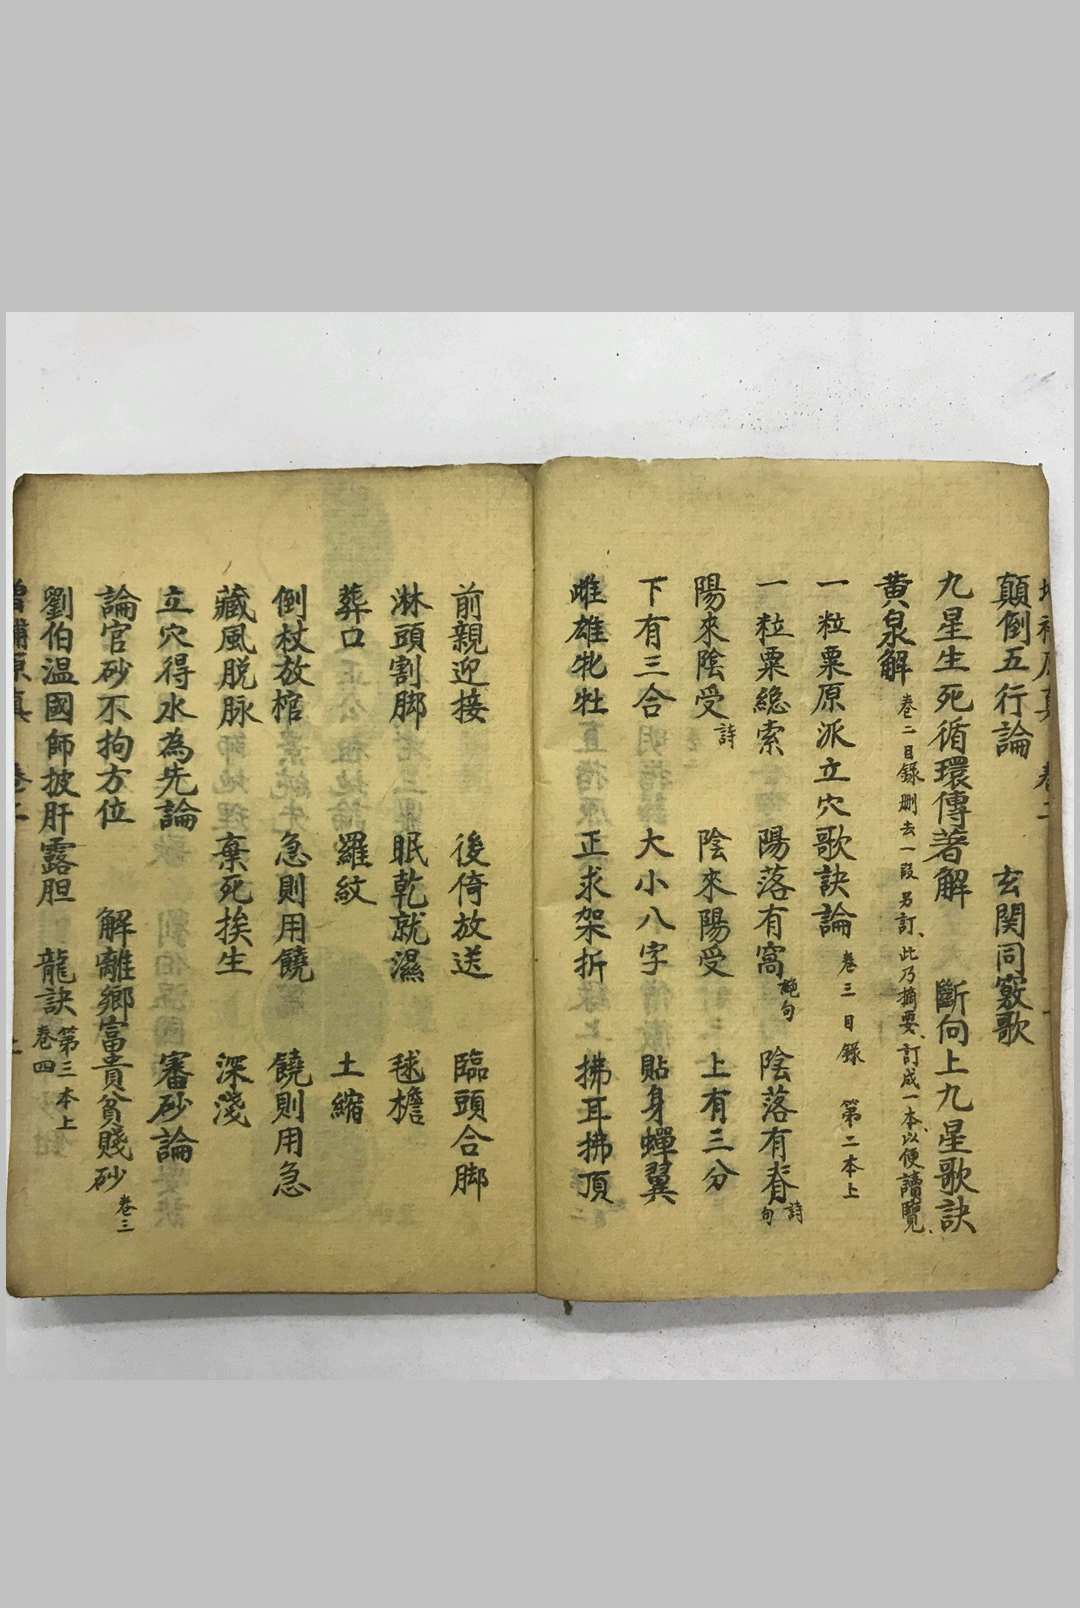 顛倒五行論 玄関同竅歌
九星生死循環傳著解 斷向上九星歌訣
黄泉解 卷二目録刪去一段另訂、此乃摘要、訂成一本、以便讀覽、
一粒粟原派立穴歌訣論 卷三目録 第二本上
一粒粟総索 陽落有窩 絶句 陰落有脊 詩句
陽來陰受 詩 陰來陽受 上有三分
下有三合 大小八字 貼身蟬翼
雌雄牝牡 正求架折 拂耳拂頂
前親迎接 後倚放送 臨頭合脚
淋頭割脚 眠乾就濕 毬檐
葬口 羅紋 土縮
倒杖放棺 急則用饒 饒則用急
藏風脱脉 棄死挨生 深淺
立穴得水為先論 審砂論
論官砂不拘方位 解離鄉富貴貧賤砂 卷三
劉伯温國師披肝露胆 龍訣 第三本上 卷四